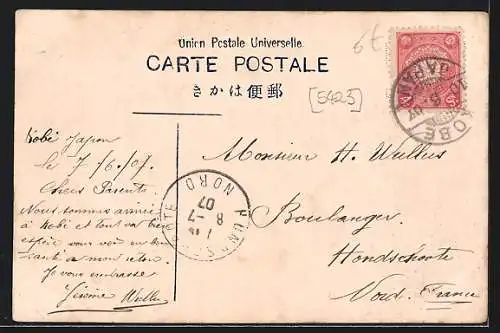 Union Postale Universelle
CARTE POSTALE
きかは便郵
6f
[5425]
KOBE
JAPAN
Kobé Japon
le 7/6/07.
Chers Parents
Nous sommes arrivé
à Kobé et tout va bien
espère vous voir en bonne
santé a mon retour.
Je vous embrasse
Jérôme
Monsieur H.
Boulanger
Hondschoote
Nord. France
NORD
8-7
07